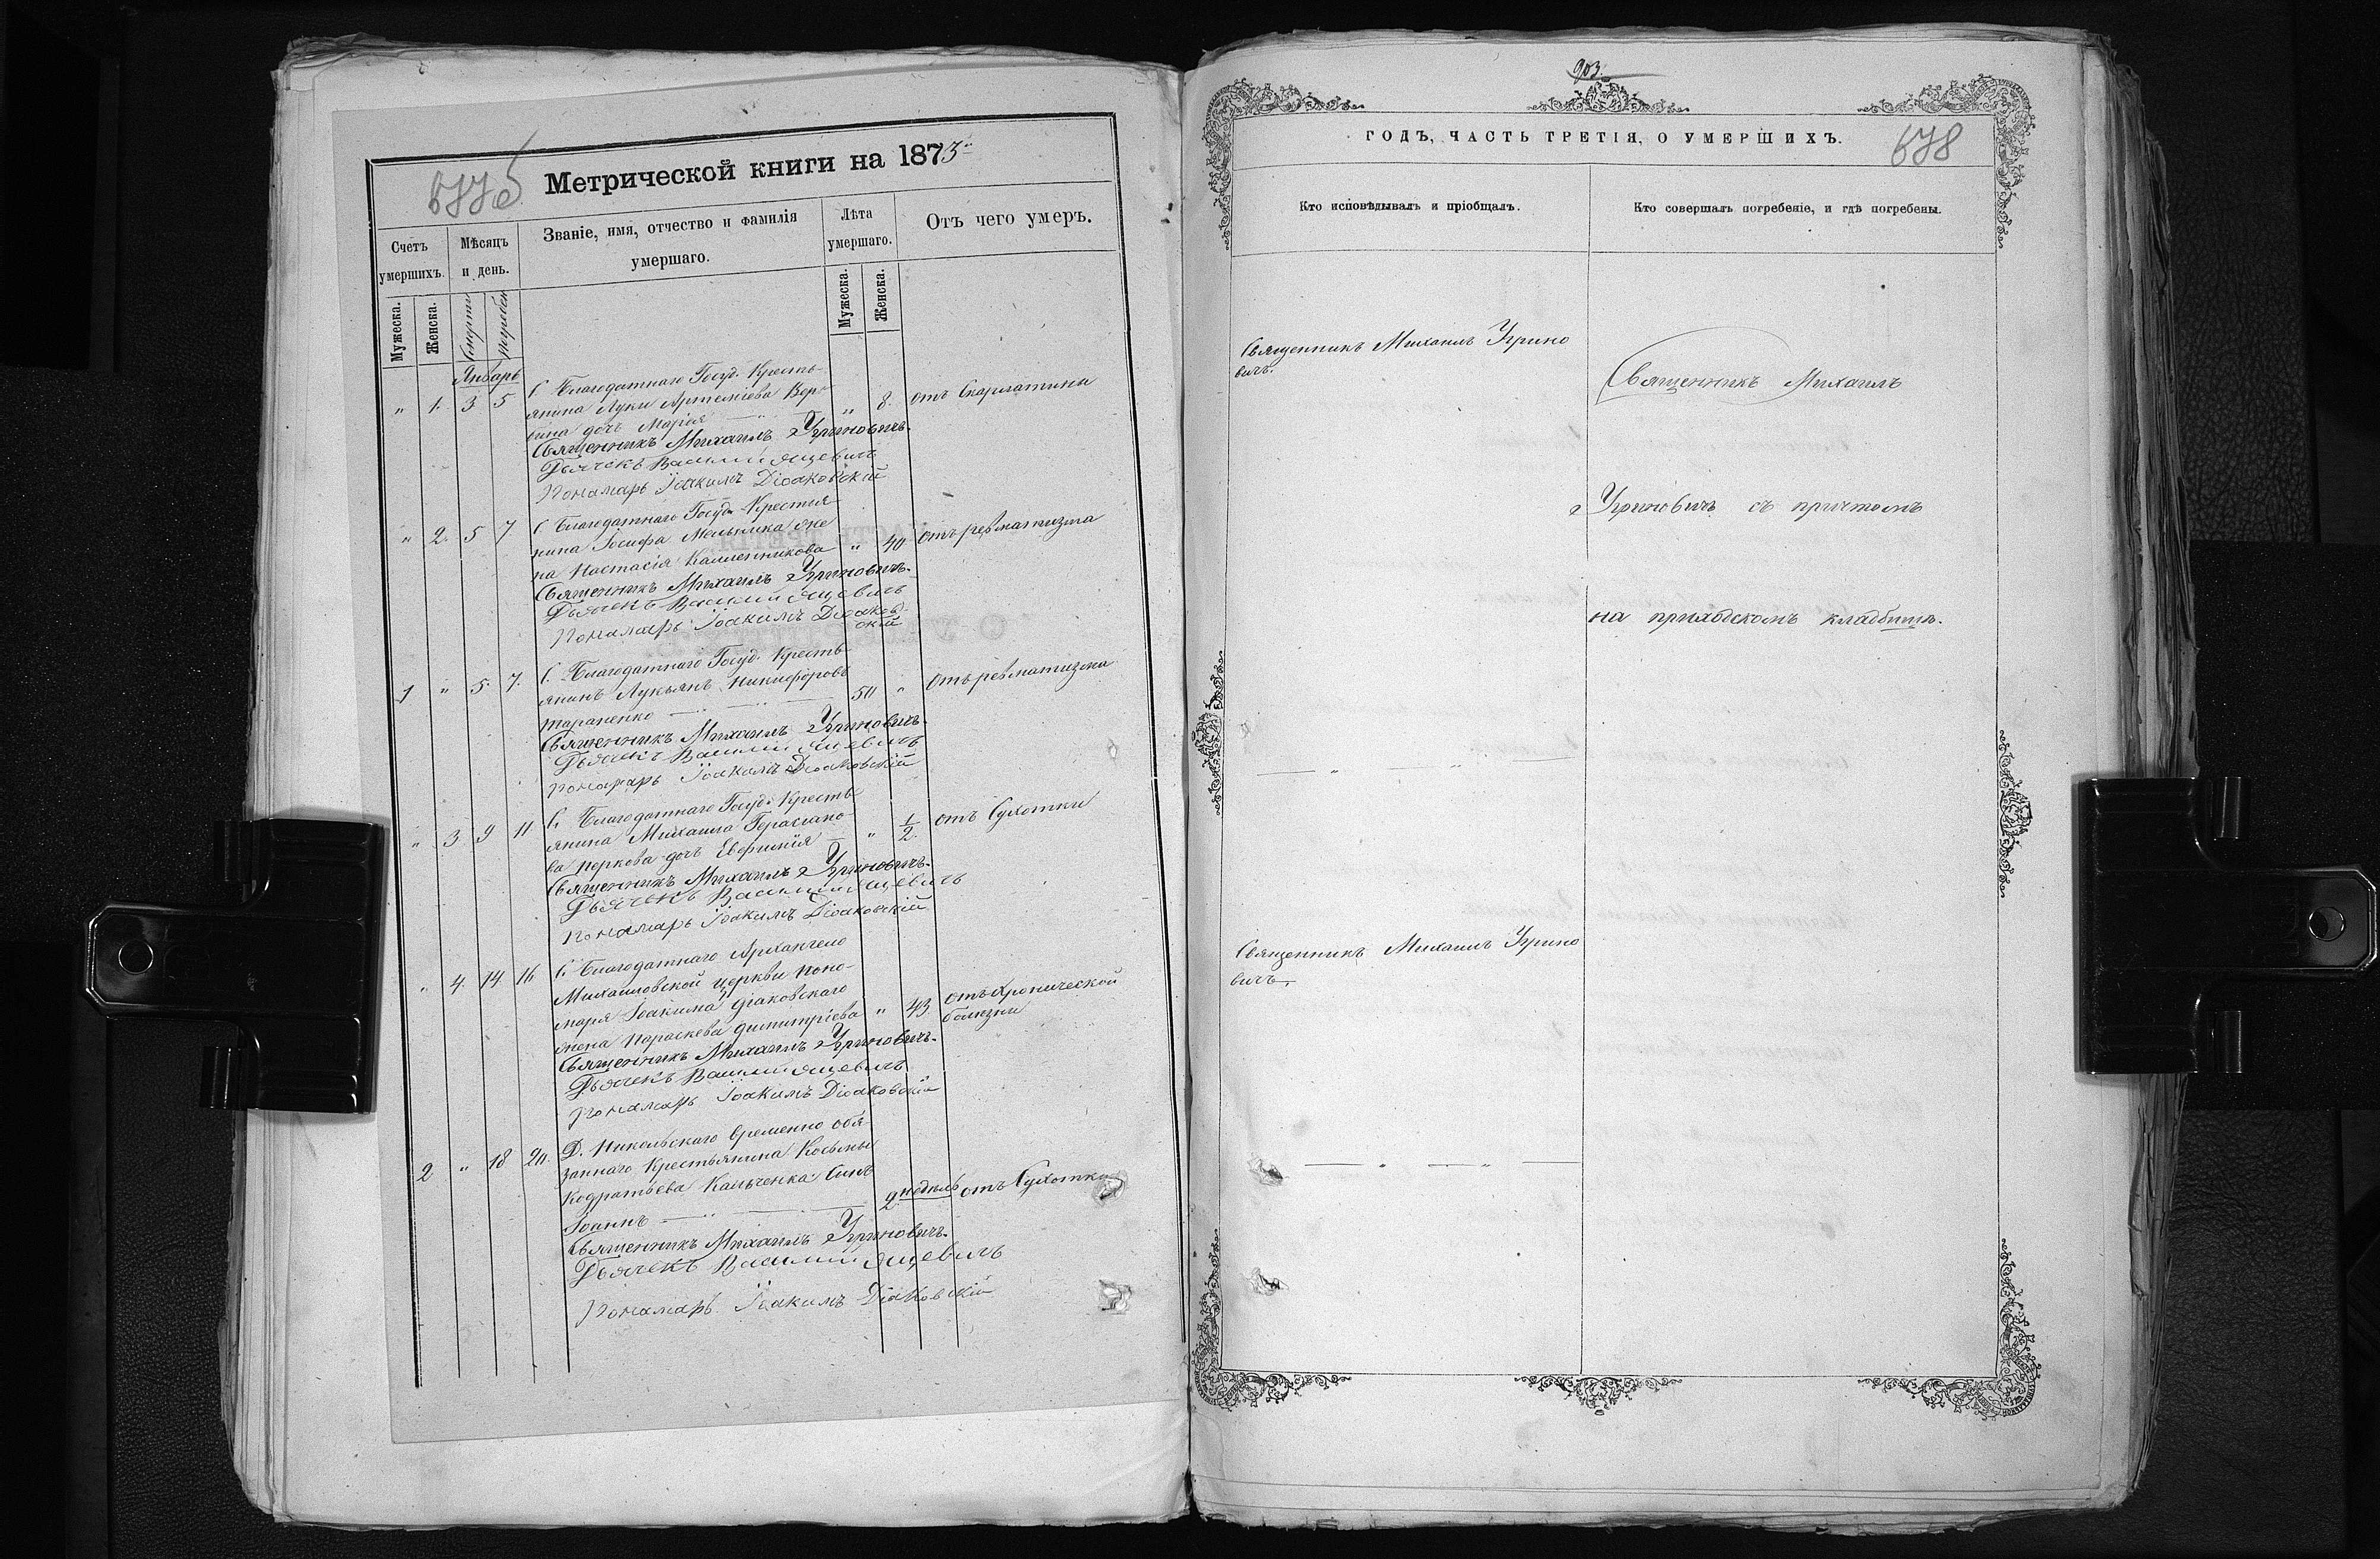 677б
Метрической книги на 1873й
Счетъ умершихъ.
Мѣсяцъ и день.
Званіе, имя, отчество и фамилія умершаго.
Лѣта умершаго.
Отъ чего умеръ.
Мужеска.
Женска.
Смерти
Погребен
Мужеска.
Женска.
Январь
С. Благодатнаго Госуд. Кресть-
" 1. 3 5 янина Луки Артеміева " 8. отъ Скарлатины
дочь Марія
Священникъ Михаилъ Угриновичъ.
Дьячекъ Василий Яцевичъ
Пономарь Іоакимъ Діаковскій
С. Благодатнаго Госуд. Крестья
" 2. 5 7 нина Іосифа Мельника же
на Настасія Каленникова " 40 отъ ревматизма
Священникъ Михаилъ Угриновичъ.
Дьячекъ Василий Яцевичъ
Пономарь Іоакимъ Діаков-
скій
С. Благодатнаго Госуд. Кресть
1 " 5. 7. янинъ Лукьянъ Никифоровъ
Тараненко 50 " отъ ревматизма
Священникъ Михаилъ Угриновичъ.
Дьячекъ Василий Яцевичъ
Пономарь Іоакимъ Діаковскій
С. Благодатнаго Госуд. Кресть
" 3 9 11 янина Михаила Герасимо-
ва дочь Евфимія " 1/2. отъ Сухотки
Священникъ Михаилъ Угриновичъ.
Дьячекъ Василий Яцевичъ
Пономарь Іоакимъ Діаковскій
" 4. 14. 16 С. Благодатнаго Архангело
Михаиловской церкви поно-
маря Іоакима Діаковскаго
жена Параскева Димитріева " 43. отъ Хронической
болезни
Священникъ Михаилъ Угриновичъ.
Дьячекъ Василий Яцевичъ
Пономарь Іоакимъ Діаковскій
2 " 18 20. Д. Никольскаго временно обя
заннаго Крестьянина Косьмы
Кодратьева Кальченка Сынъ
Іоаннъ 2 недель отъ Сухотки
Священникъ Михаилъ Угриновичъ.
Дьячекъ Василий Яцевичъ
Пономарь Іоакимъ Діаковскій
903.
ГОДЪ, ЧАСТЬ ТРЕТІЯ, О УМЕРШИХЪ.
678
Кто исповѣдывалъ и пріобщалъ.
Кто совершалъ погребеніе, и гдѣ погребены.
Священникъ Михаилъ Угрино
вичъ.
Священникъ Михаилъ
Угриновичъ съ причтомъ
на приходскомъ кладбищѣ.
Священникъ Михаилъ Угрино
вичъ